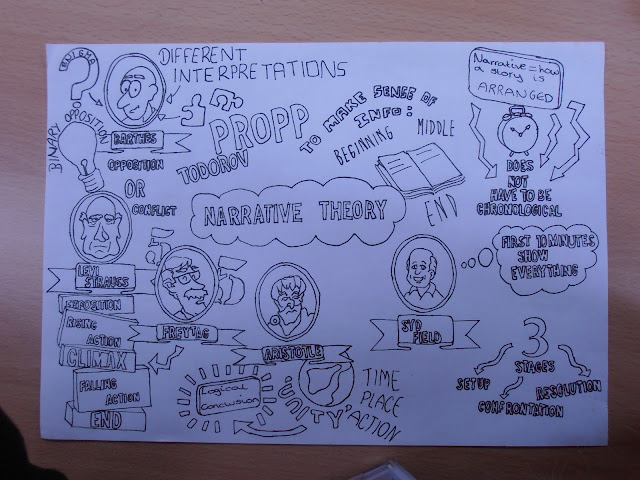 ENIGMA
DIFFERENT
INTERPRETATIONS
BARTHES
BINARY OPPOSITION
OPPOSITION
OR
CONFLICT
PROPP
TODOROV
TO MAKE SENSE OF
INFO:
BEGINNING
MIDDLE
END
Narrative = how
a story is
ARRANGED
DOES
NOT
HAVE TO BE
CHRONOLOGICAL
NARRATIVE THEORY
LEVI
STRAUSS
5
5
FREYTAG
EXPOSITION
RISING
ACTION
CLIMAX
FALLING
ACTION
END
ARISTOTLE
Logical
conclusion
'UNITY'
TIME
PLACE
ACTION
SYD
FIELD
FIRST 10 MINUTES
SHOW
EVERYTHING
3
STAGES
SETUP
CONFRONTATION
RESOLUTION